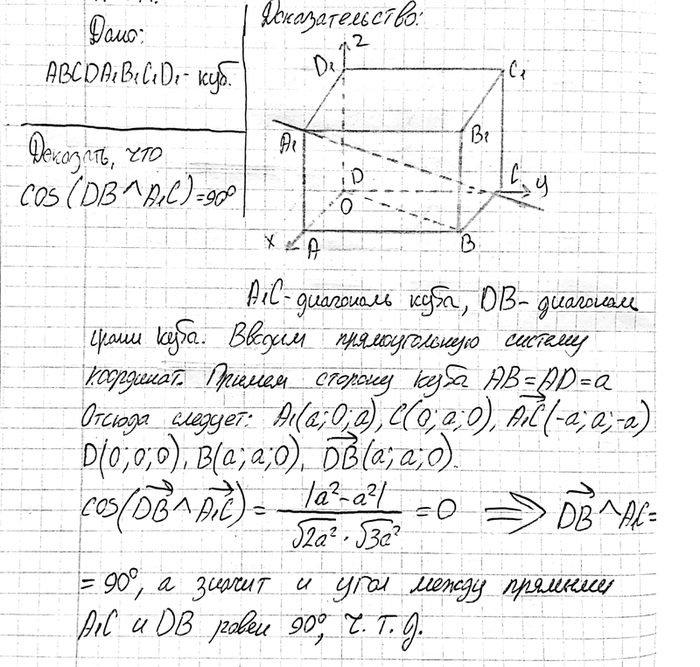 Дано:
ABCDA₁B₁C₁D₁ - куб.
Доказать, что
cos(DB^A₁C)=90°
Доказательство:
z
D₁
C₁
A₁
B₁
D
C
y
O
x
A
B
A₁C - диагональ куба, DB - диагональ
грани куба. Вводим прямоугольную систему
координат. Примем сторону куба AB=AD=a
Отсюда следует: A₁(a;0;a), C(0;a;0), A₁C(-a;a;-a)
D(0;0;0), B(a;a;0), DB(a;a;0).
cos(DB^A₁C) = |a²-a²| / √2a² · √3a² = 0 ⟹ DB^A₁C=
= 90°, а значит и угол между прямыми
A₁C и DB равен 90°, ч.т.д.